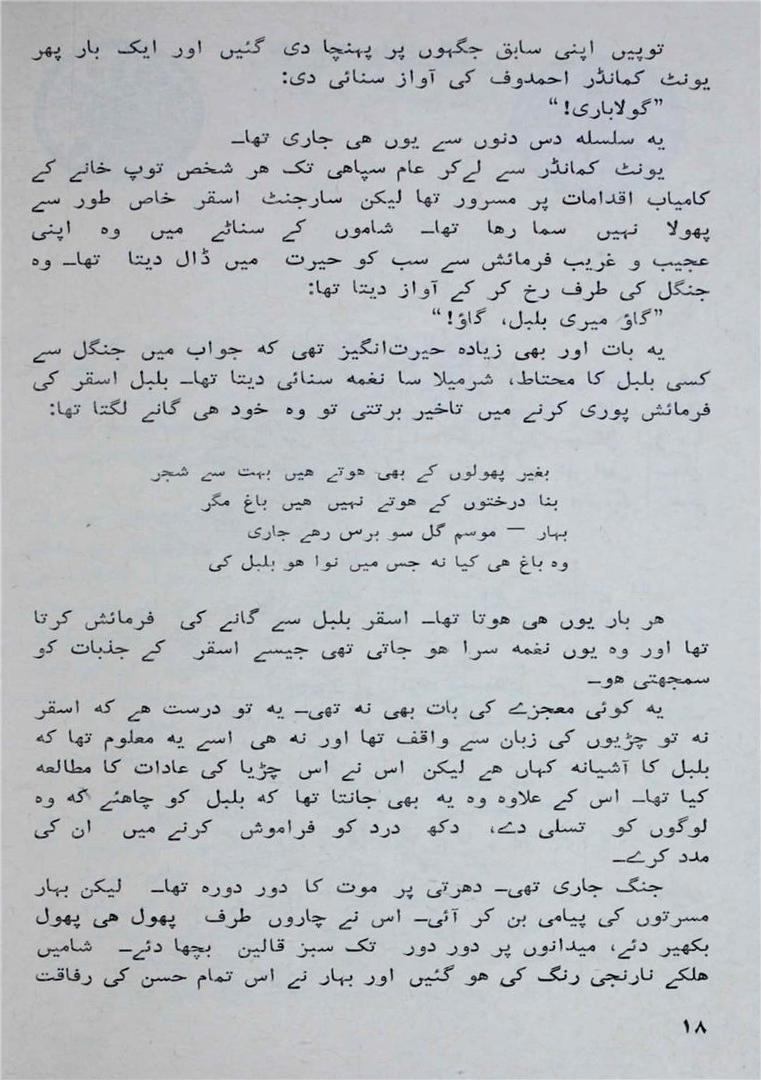 توپیں اپنی سابق جگہوں پر پہنچا دی گئیں اور ایک بار پھر
یونٹ کمانڈر احمدوف کی آواز سنائی دی:
”گولاباری!“
یہ سلسلہ دس دنوں سے یوں ھی جاری تھا۔
یونٹ کمانڈر سے لےکر عام سپاھی تک ھر شخص توپ خانے کے
کامیاب اقدامات پر مسرور تھا لیکن سارجنٹ اسقر خاص طور سے
پھولا نہیں سما رھا تھا۔ شاموں کے سناٹے میں وہ اپنی
عجیب و غریب فرمائش سے سب کو حیرت میں ڈال دیتا تھا۔ وہ
جنگل کی طرف رخ کر کے آواز دیتا تھا:
”گاؤ میری بلبل، گاؤ!“
یہ بات اور بھی زیادہ حیرت‌انگیز تھی کہ جواب میں جنگل سے
کسی بلبل کا محتاط، شرمیلا سا نغمہ سنائی دیتا تھا۔ بلبل اسقر کی
فرمائش پوری کرنے میں تاخیر برتتی تو وہ خود ھی گانے لگتا تھا:
بغیر پھولوں کے بھی ھوتے ھیں بہت سے شجر
بنا درختوں کے ھوتے نہیں ھیں باغ مگر
بہار — موسم گل سو برس رھے جاری
وہ باغ ھی کیا نہ جس میں نوا ھو بلبل کی
ھر بار یوں ھی ھوتا تھا۔ اسقر بلبل سے گانے کی فرمائش کرتا
تھا اور وہ یوں نغمہ سرا ھو جاتی تھی جیسے اسقر کے جذبات کو
سمجھتی ھو۔
یہ کوئی معجزے کی بات بھی نہ تھی۔ یہ تو درست ھے کہ اسقر
نہ تو چڑیوں کی زبان سے واقف تھا اور نہ ھی اسے یہ معلوم تھا کہ
بلبل کا آشیانہ کہاں ھے لیکن اس نے اس چڑیا کی عادات کا مطالعہ
کیا تھا۔ اس کے علاوہ وہ یہ بھی جانتا تھا کہ بلبل کو چاھئے کہ وہ
لوگوں کو تسلی دے، دکھ درد کو فراموش کرنے میں ان کی
مدد کرے۔
جنگ جاری تھی۔ دھرتی پر موت کا دور دورہ تھا۔ لیکن بہار
مسرتوں کی پیامی بن کر آئی۔ اس نے چاروں طرف پھول ھی پھول
بکھیر دئے، میدانوں پر دور دور تک سبز قالین بچھا دئے۔ شامیں
ھلکے نارنجی رنگ کی ھو گئیں اور بہار نے اس تمام حسن کی رفاقت
۱۸